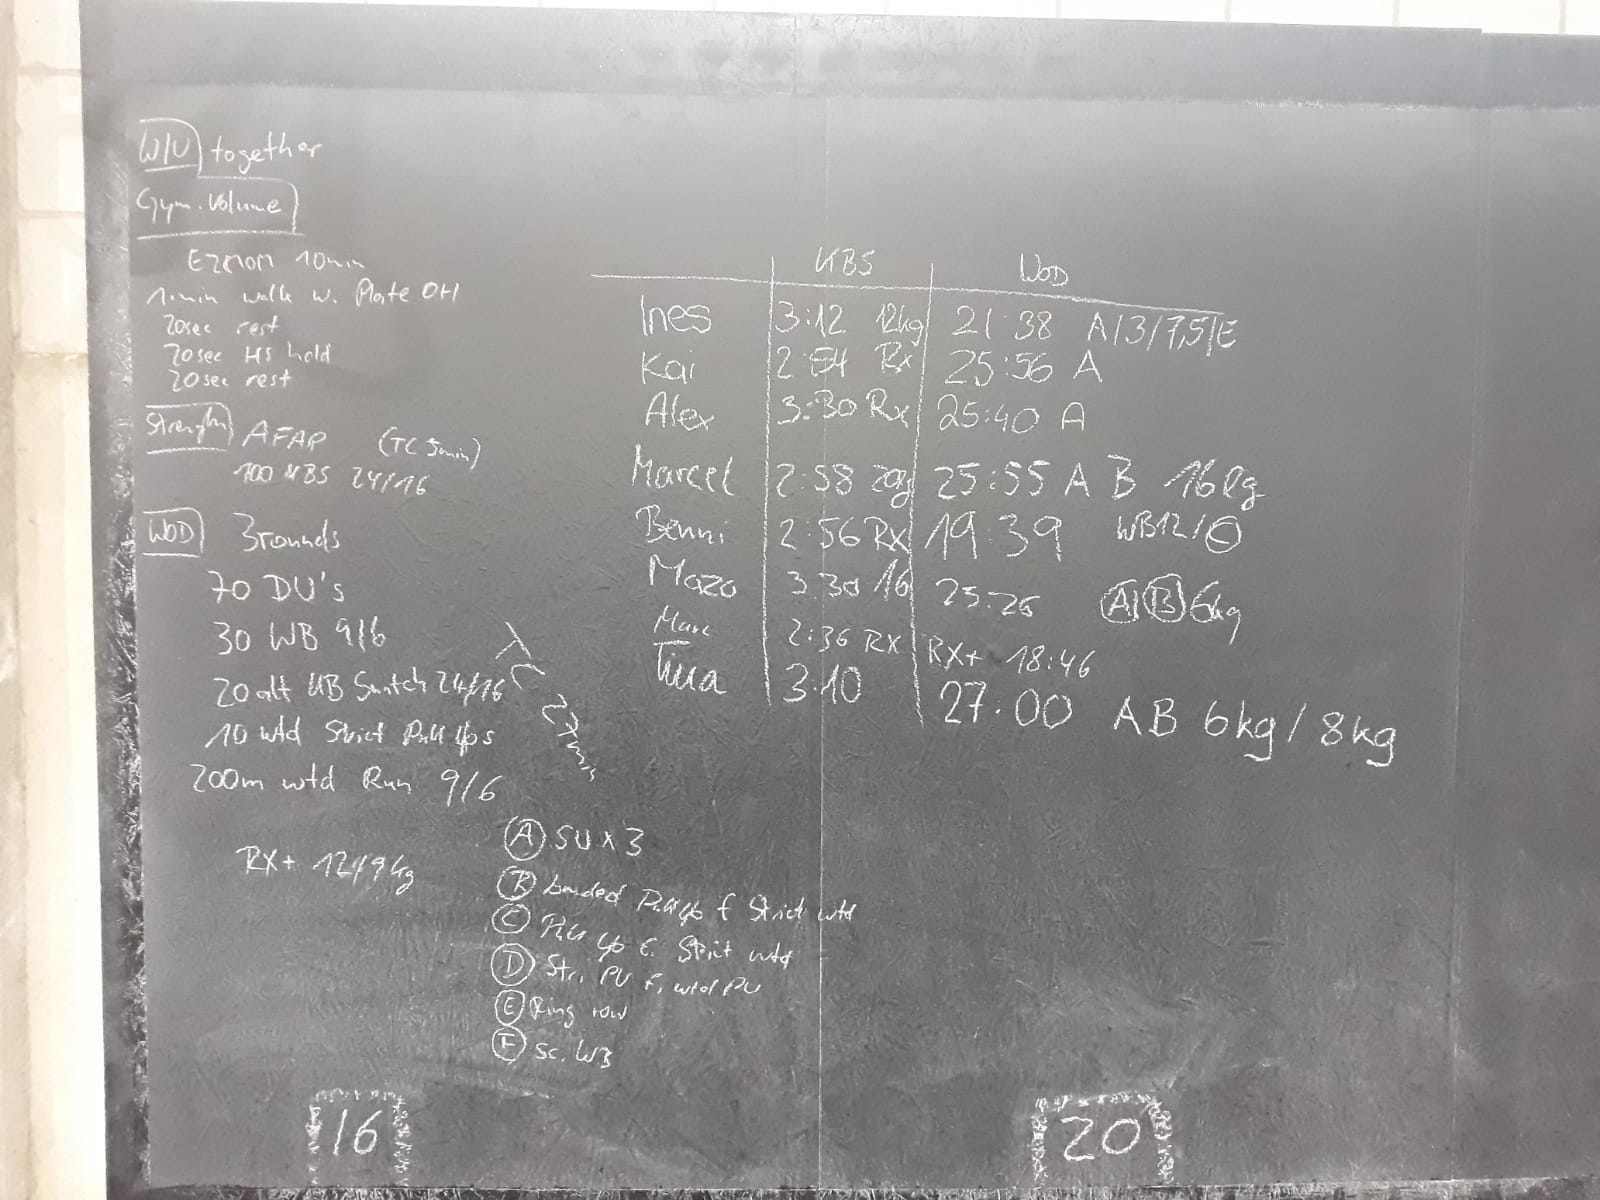 W/U together
Gym. Volume
E2MOM 10min
1.min walk w. Plate OH
20sec rest
20sec HS hold
20sec rest
Strength AFAP (TC 5min)
100 KBS 24/16
WOD 3rounds
70 DU's
30 WB 9/6
20 alt KB Snatch 24/16
10 wtd Strict Pull ups
200m wtd Run 9/6
TC 27min
RX+ 12/9kg
A SU x 3
B banded Pull up f Strict wtd
C Pull up f. Strict wtd
D Str. PU f. wtd PU
E Ring row
F Sc. WB
16
KBS WOD
Ines 3:12 12kg 21:38 A/3/7,5/E
Kai 2:54 Rx 25:56 A
Alex 3:30 Rx 25:40 A
Marcel 2:58 20kg 25:55 A B 16kg
Benni 2:56 RX 19:39 WB12/C
Mazo 3:30 16 25:26 A/B 6kg
Marc 2:36 RX RX+ 18:46
Tina 3:10 27:00 AB 6kg/8kg
20